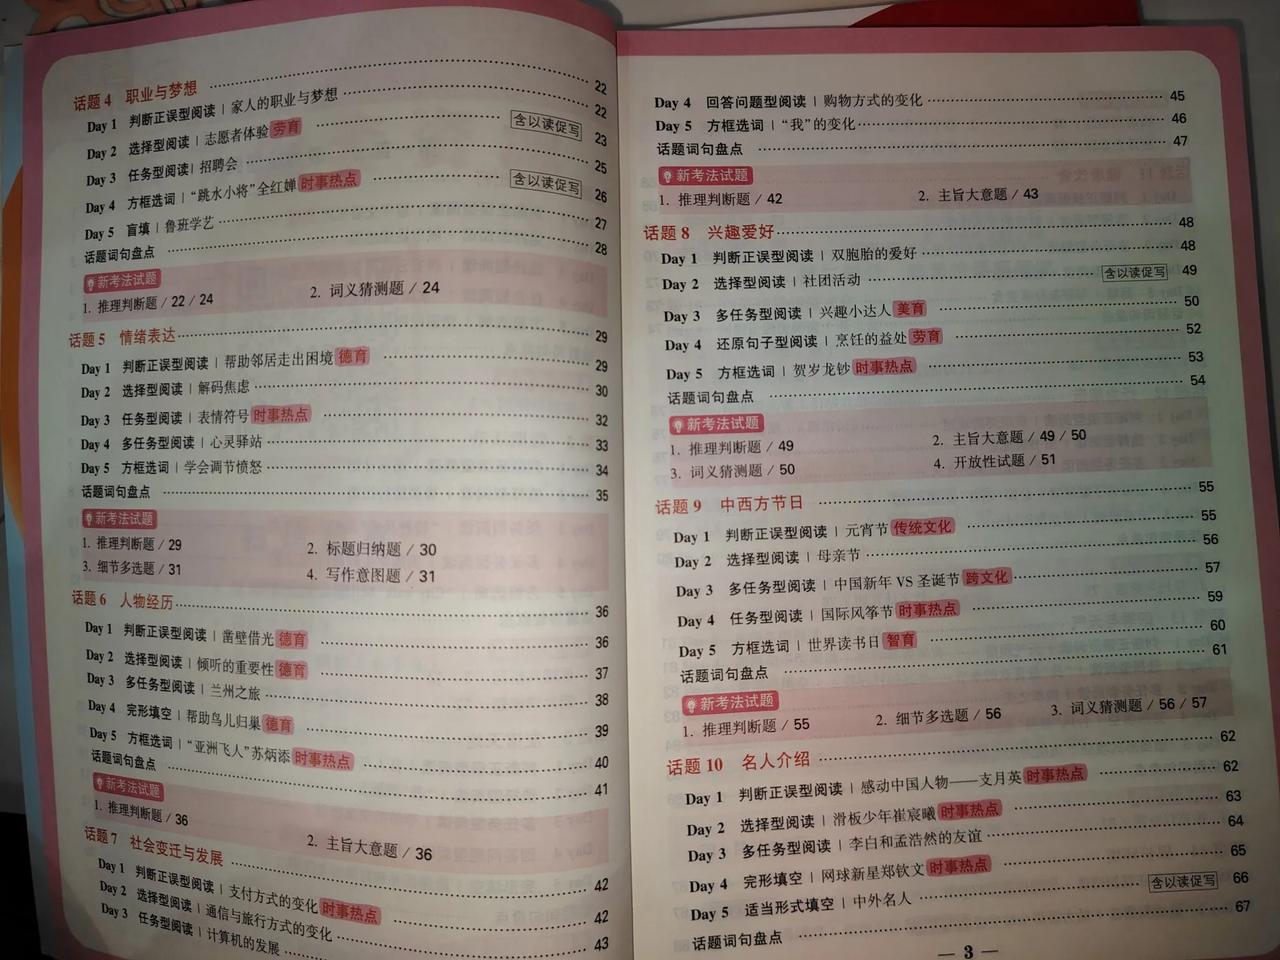 话题4 职业与梦想 22
Day 1 判断正误型阅读 | 家人的职业与梦想 22
Day 2 选择型阅读 | 志愿者体验 劳育 含以读促写 23
Day 3 任务型阅读 | 招聘会 25
Day 4 方框选词 | “跳水小将”全红婵 时事热点 含以读促写 26
Day 5 盲填 | 鲁班学艺 27
话题词句盘点 28
新考法试题
1. 推理判断题 / 22 / 24 2. 词义猜测题 / 24
话题5 情绪表达 29
Day 1 判断正误型阅读 | 帮助邻居走出困境 德育 29
Day 2 选择型阅读 | 解码焦虑 30
Day 3 任务型阅读 | 表情符号 时事热点 32
Day 4 多任务型阅读 | 心灵驿站 33
Day 5 方框选词 | 学会调节愤怒 34
话题词句盘点 35
新考法试题
1. 推理判断题 / 29 2. 标题归纳题 / 30
3. 细节多选题 / 31 4. 写作意图题 / 31
话题6 人物经历 36
Day 1 判断正误型阅读 | 凿壁借光 德育 36
Day 2 选择型阅读 | 倾听的重要性 德育 37
Day 3 多任务型阅读 | 兰州之旅 38
Day 4 完形填空 | 帮助鸟儿归巢 德育 39
Day 5 方框选词 | “亚洲飞人”苏炳添 时事热点 40
话题词句盘点 41
新考法试题
1. 推理判断题 / 36 2. 主旨大意题 / 36
话题7 社会变迁与发展 42
Day 1 判断正误型阅读 | 支付方式的变化 时事热点 42
Day 2 选择型阅读 | 通信与旅行方式的变化
Day 3 任务型阅读 | 计算机的发展 43
Day 4 回答问题型阅读 | 购物方式的变化 45
Day 5 方框选词 | “我”的变化 46
话题词句盘点 47
新考法试题
1. 推理判断题 / 42 2. 主旨大意题 / 43
话题8 兴趣爱好 48
Day 1 判断正误型阅读 | 双胞胎的爱好 48
Day 2 选择型阅读 | 社团活动 含以读促写 49
Day 3 多任务型阅读 | 兴趣小达人 美育 50
Day 4 还原句子型阅读 | 烹饪的益处 劳育 52
Day 5 方框选词 | 贺岁龙钞 时事热点 53
话题词句盘点 54
新考法试题
1. 推理判断题 / 49 2. 主旨大意题 / 49 / 50
3. 词义猜测题 / 50 4. 开放性试题 / 51
话题9 中西方节日 55
Day 1 判断正误型阅读 | 元宵节 传统文化 55
Day 2 选择型阅读 | 母亲节 56
Day 3 多任务型阅读 | 中国新年 VS 圣诞节 跨文化 57
Day 4 任务型阅读 | 国际风筝节 时事热点 59
Day 5 方框选词 | 世界读书日 智育 60
话题词句盘点 61
新考法试题
1. 推理判断题 / 55 2. 细节多选题 / 56 3. 词义猜测题 / 56 / 57
话题10 名人介绍 62
Day 1 判断正误型阅读 | 感动中国人物——支月英 时事热点 62
Day 2 选择型阅读 | 滑板少年崔宸曦 时事热点 63
Day 3 多任务型阅读 | 李白和孟浩然的友谊 64
Day 4 完形填空 | 网球新星郑钦文 时事热点 65
Day 5 适当形式填空 | 中外名人 含以读促写 66
话题词句盘点 67
— 3 —